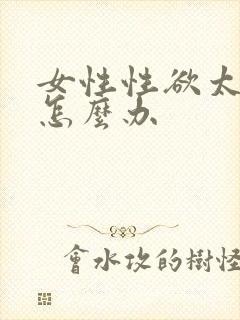 女性性欲太
怎麼办
會水攻的樹怪